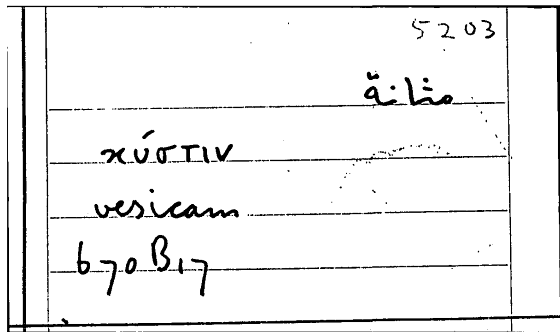 5203
مثانة
κύστιν
vesicam
670B17